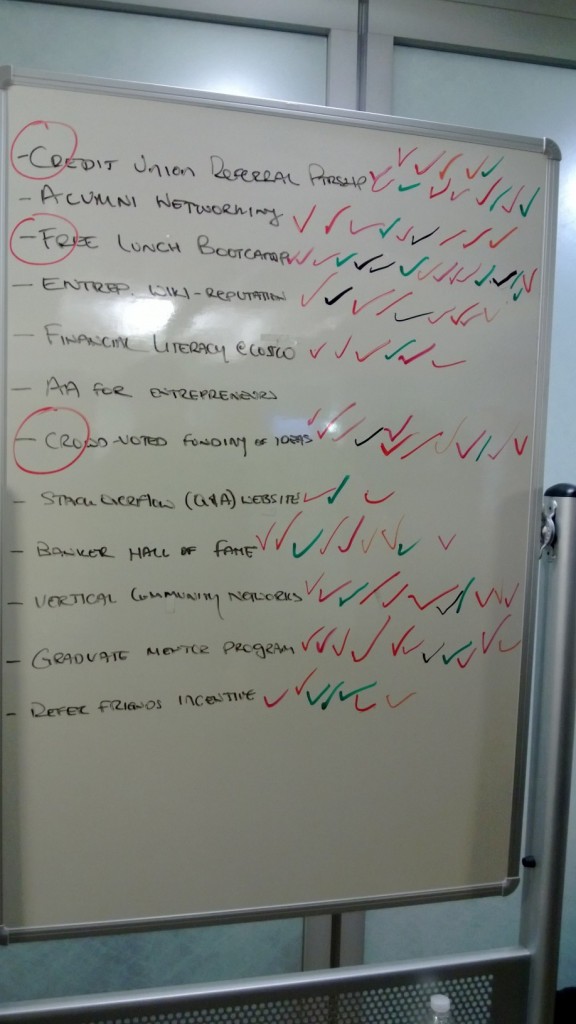 - CREDIT UNION REFERRAL
- ALUMNI NETWORKING
- FREE LUNCH BOOTCAMP
- ENTREP. WIKI-REPUTATION
- FINANCIAL LITERACY @ COSCO
- AA FOR ENTREPRENEURS
- CROWD-VOTED FUNDING OF IDEAS
- STACK OVERFLOW (Q&A) WEBSITE
- BANKER HALL OF FAME
- VERTICAL COMMUNITY NETWORKS
- GRADUATE MENTOR PROGRAM
- REFER FRIENDS INCENTIVE